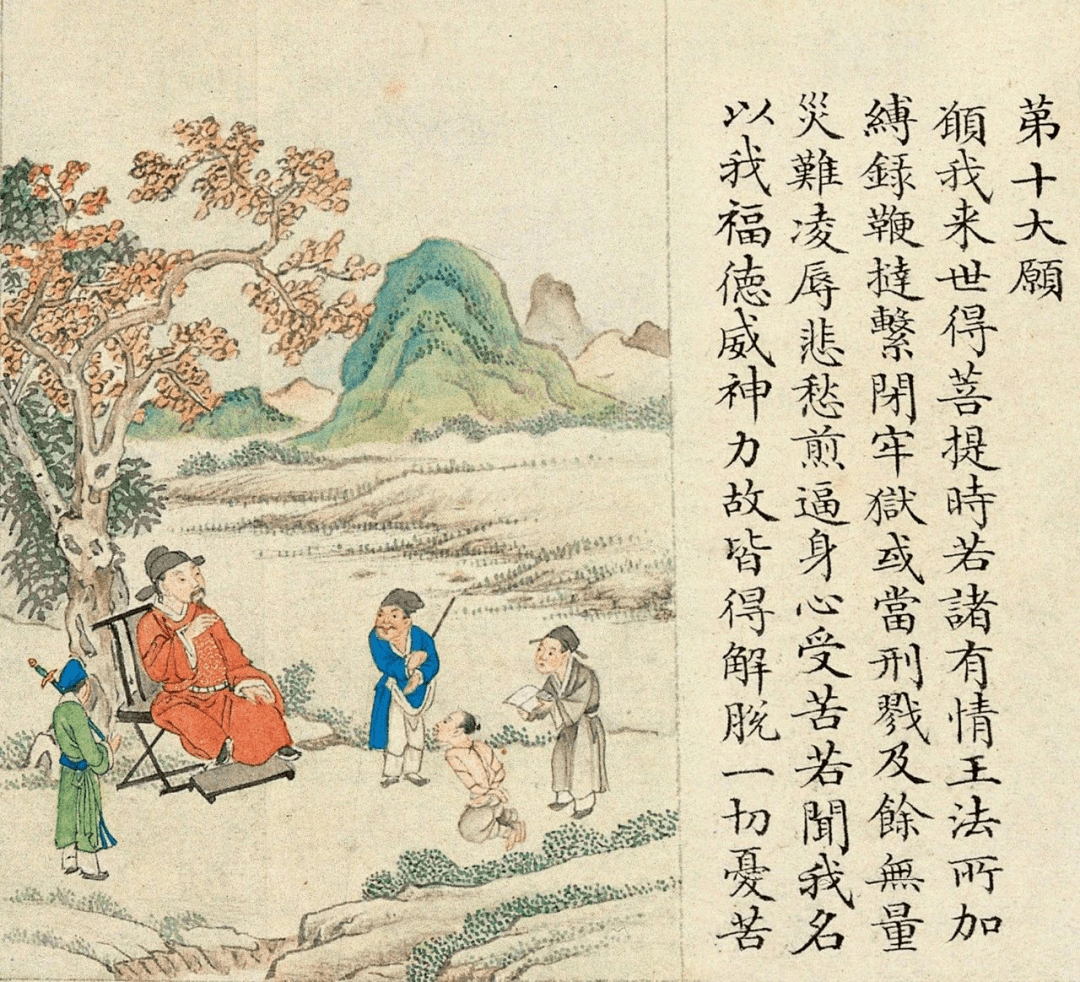 苐十大願
願我来世得菩提時若諸有情王法所加
縛録鞭撻繫閉牢獄或當刑戮及餘無量
災難凌辱悲愁煎逼身心受苦若聞我名
以我福德威神力故皆得解脫一切憂苦